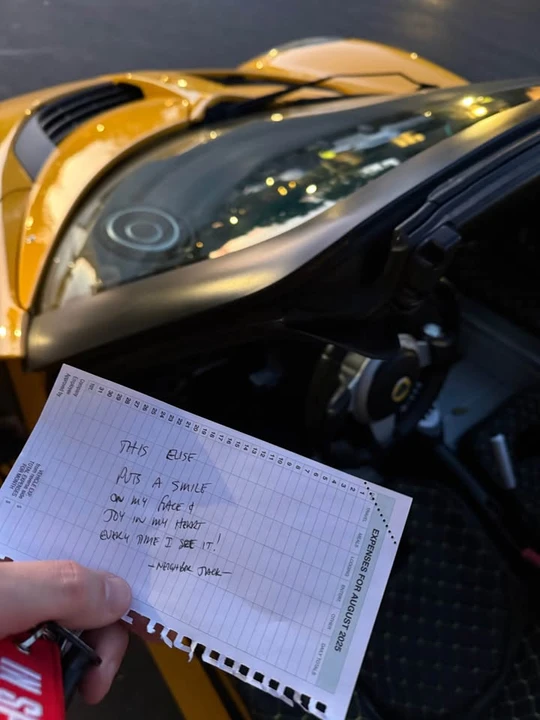 THIS ELISE
PUTS A SMILE
ON MY FACE &
JOY IN MY HEART
EVERY TIME I SEE IT!
-NEIGHBOR JACK-
EXPENSES FOR AUGUST 2025
1
2
3
4
5
6
7
8
9
10
11
12
13
14
15
16
17
18
19
20
21
22
23
24
25
26
27
28
29
30
31
TOT.
DAILY TOTALS
Company
Employee
Approved by
TOTAL EXPENSES
FOR MONTH
$
$
IN S